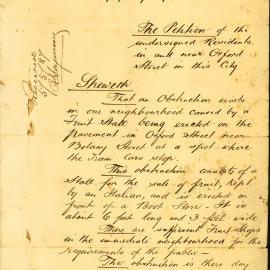 The Petition of the
undersigned Residents
in and near Oxford
Street in this City
Sheweth
That an Obstruction exists
in our neighbourhood caused by a
Fruit Stall being erected on the
pavement in Oxford Street near
Botany Street at a spot where
the Tram Cars stop.
This obstruction consists of a
Stall for the sale of fruit, kept
by an Italian, and is erected in
front of a Boot Store. It is
about 6 feet long and 3 feet wide
There are sufficient Fruit Shops
in the immediate neighbourhood for the
requirements of the public
The obstruction is there day